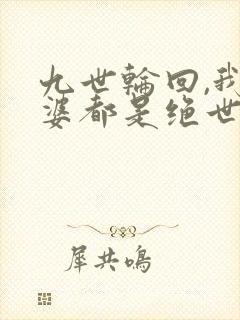 九世輪回,我
婆都是绝世
犀共鳴